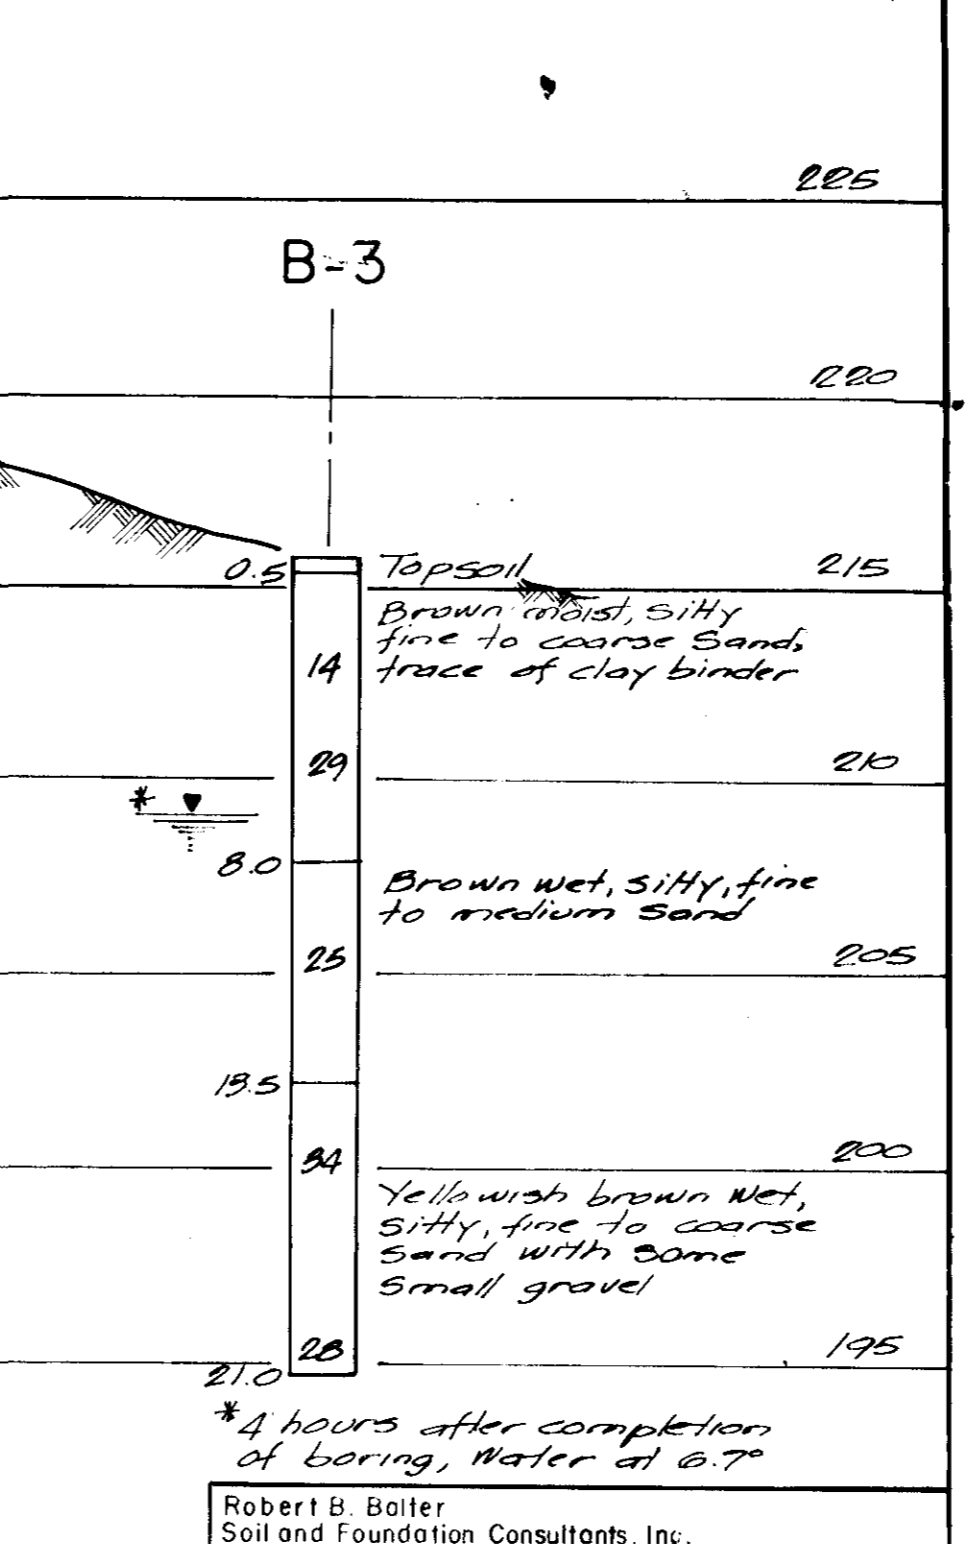 225
B-3
220
0.5 Topsoil 215
Brown moist, silty
fine to coarse Sand,
14 trace of clay binder
29 210
*
8.0 Brown wet, silty, fine
to medium Sand
25 205
13.5
34 200
Yellowish brown wet,
silty, fine to coarse
Sand with some
Small gravel
28 195
21.0
*4 hours after completion
of boring, Water at 6.7°
Robert B. Balter
Soil and Foundation Consultants, Inc.